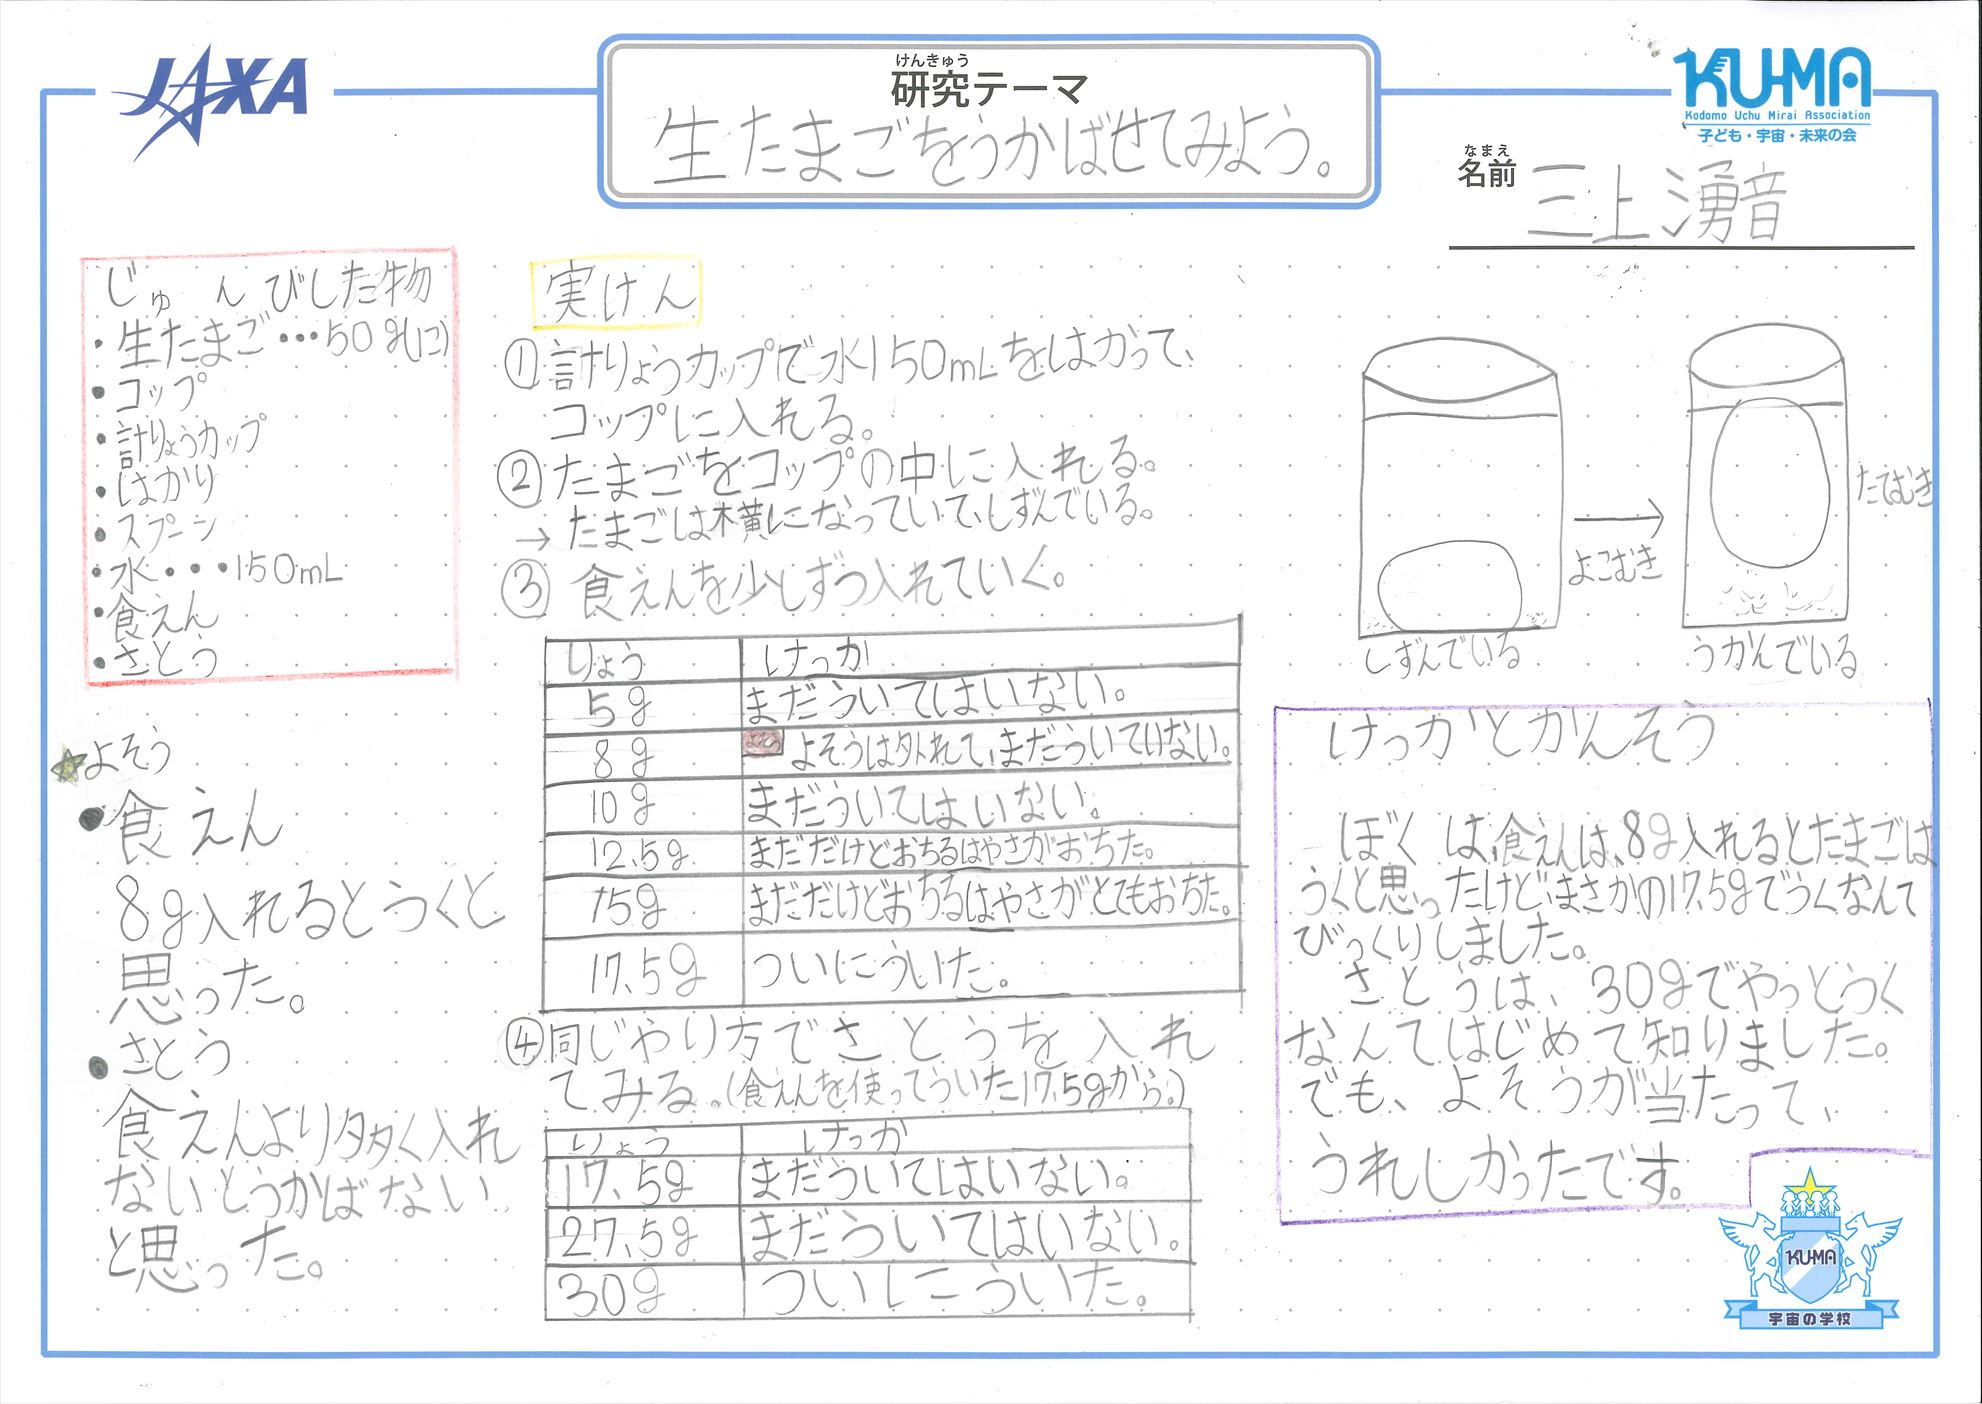 JAXA
けんきゅう
研究テーマ
生たまごをうかばせてみよう。
KU-MA
Kodomo Uchu Mirai Association
子ども・宇宙・未来の会
なまえ
名前
三上湧音
じゅんびした物
・生たまご…50g(1コ)
・コップ
・計りょうカップ
・はかり
・スプーン
・水・・・150mL
・食えん
・さとう
よそう
・食えん
8g入れるとうくと
思った。
・さとう
食えんより多く入れ
ないとうかばない
と思った。
実けん
①計りょうカップで水150mLをはかって、
コップに入れる。
②たまごをコップの中に入れる。
→たまごは横になっていて、しずんでいる。
③食えんを少しずつ入れていく。
りょう けっか
5g まだういてはいない。
8g よそうは外れて、まだういていない。
10g まだういてはいない。
12.5g まだだけどおちるはやさがおちた。
15g まだだけどおちるはやさがとてもおちた。
17.5g ついにういた。
④同じやり方でさとうを入れ
てみる。(食えんを使ってういた17.5gから。)
りょう けっか
17.5g まだういてはいない。
27.5g まだういてはいない。
30g ついにういた。
よこむき
たてむき
しずんでいる
うかんでいる
けっかとかんそう
ぼくは、食えんは、8g入れるとたまごは
うくと思ったけど、まさかの17.5gでうくなんて
びっくりしました。
さとうは、30gでやっとうく
なんてはじめて知りました。
でも、よそうが当たって、
うれしかったです。
KU-MA
宇宙の学校